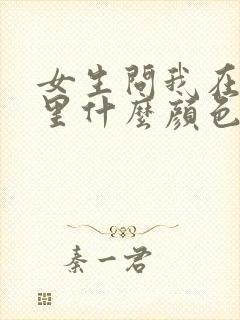 女生問我在
里什麼顏色
秦一君